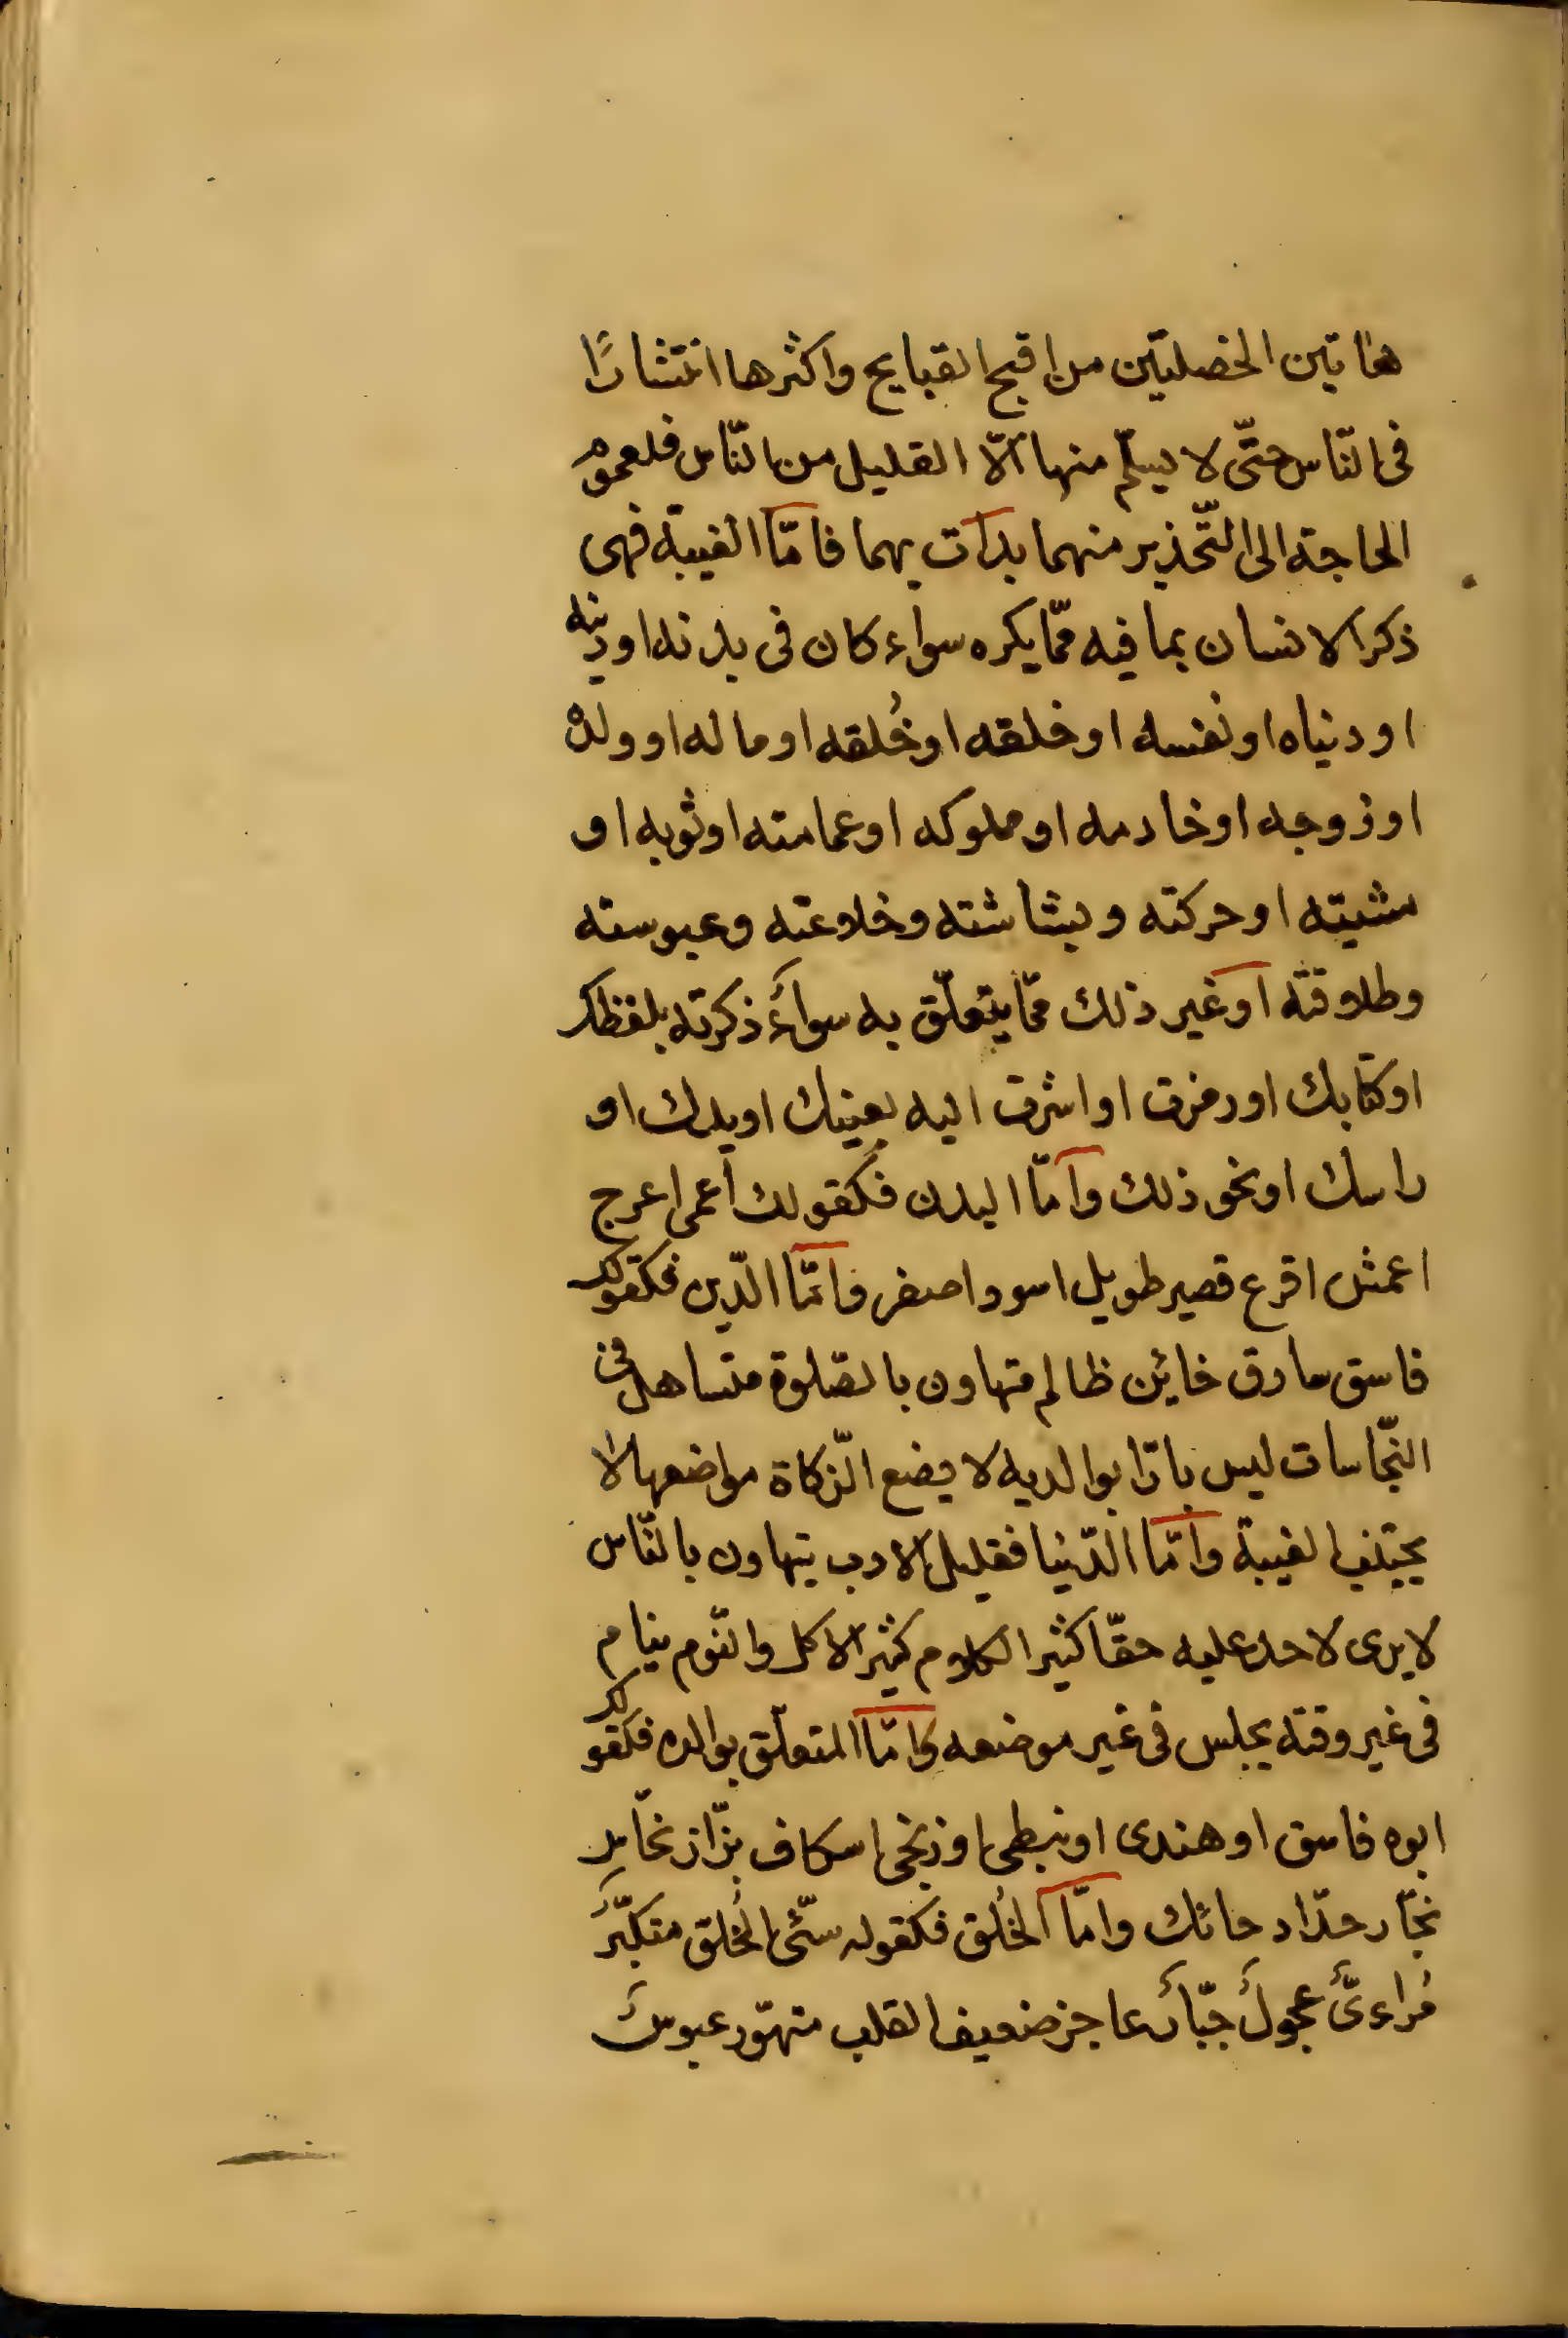 هاتين الخصلتين من اقبح القبايح واكثرها انتشارًا
فى النّاس حتّى لا يسلم منها الّا القليل من النّاس فلعموم
الحاجة الى التّحذير منهما بدات بهما فامّا الغيبة فهى
ذكر الانسان بما فيه ممّا يكره سواء كان فى بدنه او دينه
او دنياه او نفسه او خلقه او خُلقه او ماله او ولده
او زوجه او خادمه او مملوكه او عمامته او ثوبه او
مشيته او حركته وبشاشته وخلاعته وعبوسته
وطلاقته او غير ذلك ممّا يتعلّق به سواءٌ ذكرته بلفظك
او كتابك او رمزت او اشرت اليه بعينك او يدك او
راسك او نحو ذلك وامّا البدن فكقولك أعمى اعرج
اعمش اقرع قصير طويل اسود اصفر وامّا الدّين فكقولك
فاسق سارق خائن ظالم متهاون بالصّلوة متساهل فى
النّجاسات ليس بارّا بوالديه لا يضع الزّكاة مواضعها لا
يجتنب الغيبة وامّا الدّنيا فقليل الادب يتهاون بالنّاس
لا يرى لاحد عليه حقّا كثير الكلام كثير الاكل والنّوم ينام
فى غير وقته يجلس فى غير موضعه وامّا المتعلّق بوالده فكقولك
ابوه فاسق او هندى او نبطى او زنجى اسكاف بزّاز نخّاس
نجّار حدّاد حائك وامّا الخُلق فكقوله سّئى الخُلق متكبّرٌ
مُراءىٌّ عجولٌ جبّارٌ عاجز ضعيف القلب متهوّر عبوسٌ